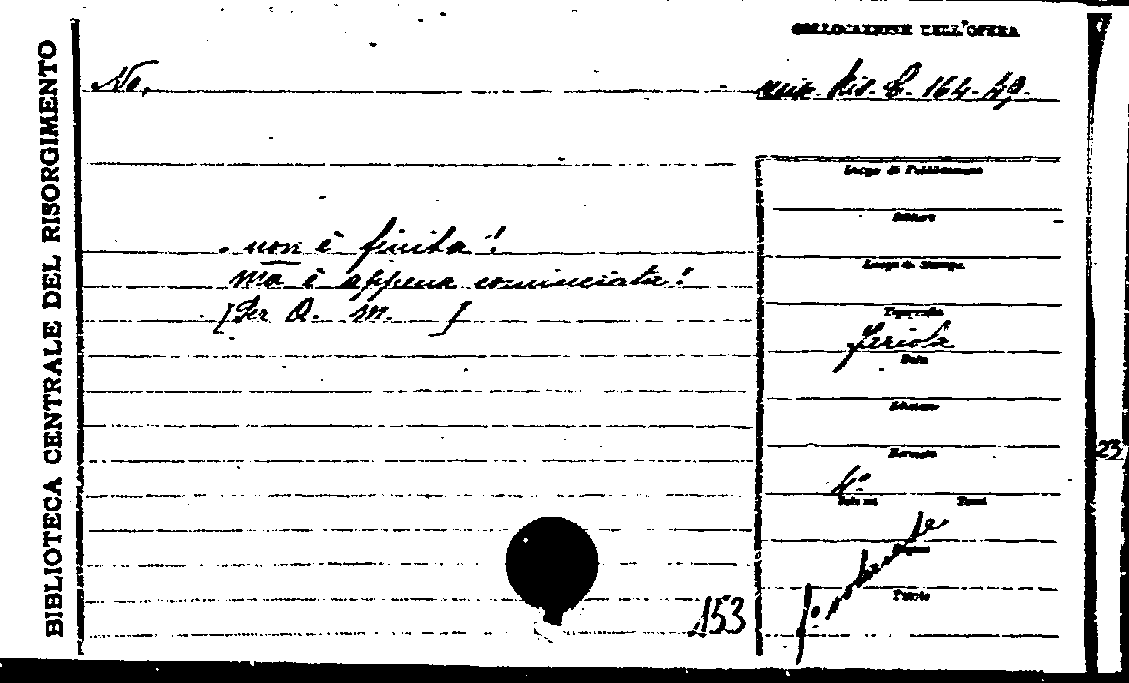 BIBLIOTECA CENTRALE DEL RISORGIMENTO
COLLOCAZIONE DELL'OPERA
No,
Ris. C. 164. 49.
. non è finita!
ma è appena cominciata!
[Per Q. M. ]
Luogo di Pubblicazione
Editore
Luogo di Stampa
Tipografia
Data
Edizione
Formato
4°
Tomi
Pagine
Tavole
153
23